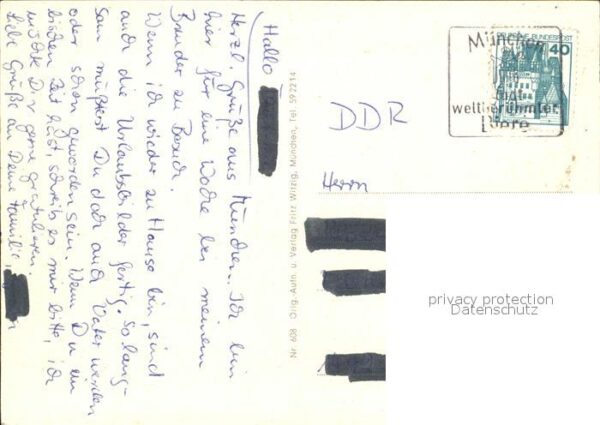 Hallo
Herzl. Grüße aus München. Ich bin
hier für eine Woche bei meinem
Bruder zu Besuch.
Wenn ich wieder zu Hause bin, sind
auch die Urlaubsbilder fertig. So lang-
sam müßtest Du doch auch Vater werden
oder schon geworden sein. Wenn Du ein
bißchen Zeit hast, schreib es mir bitte, ich
möchte Dir gerne gratulieren.
Liebe Grüße an Deine Familie,
Orig.-Aufn. u. Verlag Fritz Witzig, München, Tel. 59 22 14
Nr. 809
München
die
Stadt
weltberühmter
Biere
DEUTSCHE BUNDESPOST
40
DDR
Herrn
privacy protection
Datenschutz